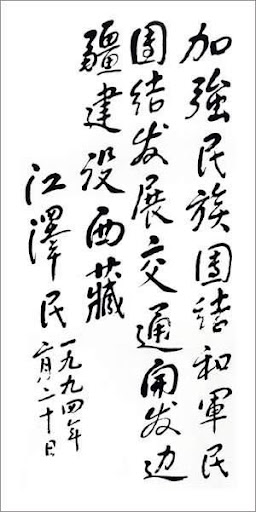 加強民族團结和軍民
團结发展交通開发边
疆建设西藏
江澤民
一九九四年
六月二十日